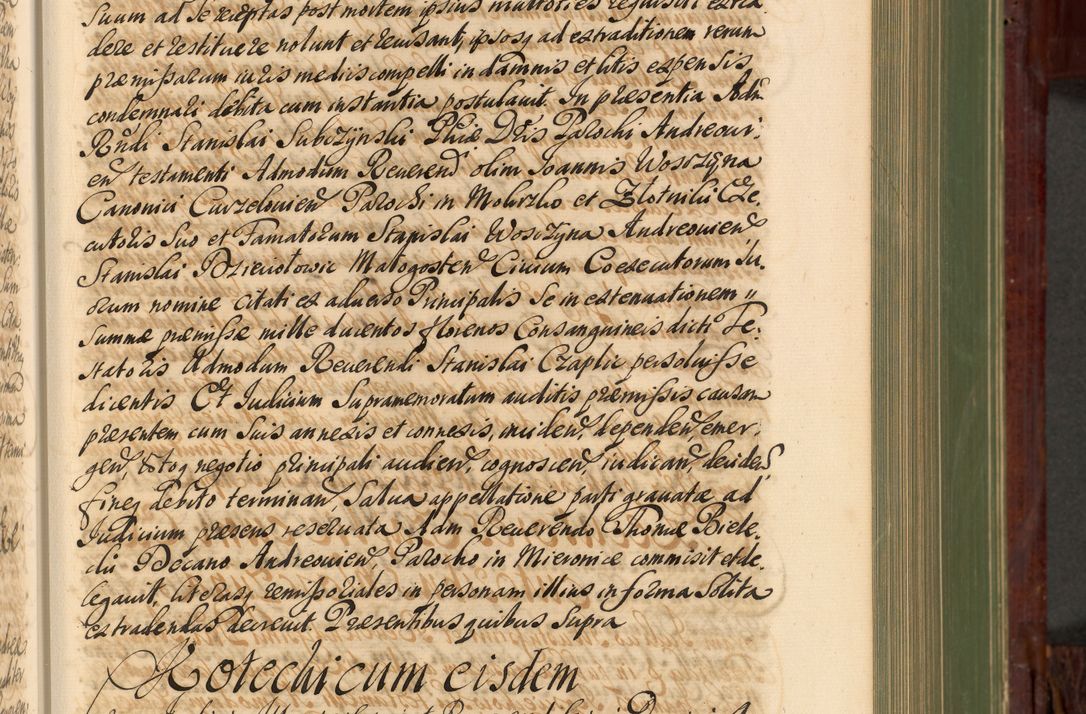 suum ad se receptas post mortem ipsius
dere et restituere nolunt et recusant, ipsosq ad extraditionem rerum
præmissarum iuris mediis compelli in damnis et litis expensis
condemnari debita cum instantia postulavit. In præsentia Adm
Rndi Stanislai Subczynski Phiæ Dris Parochi Andreovi:
en testamenti Admodum Reverend olim Joannis Wosczyna
Canonici Curzelovien Parochi in Mokrzko et Zlotniki Exe-
cutoris suo et Famatorum Stanislai Wosczyna Andreovien
Stanislai Dzieciotowic Matogosten Civium Coexecutorum su-
orum nomine citati ex adverso Principalis se in extenuationem
summæ præmissæ mille ducentos florenos Consanguineis dicti Te-
statoris Admodum Reverendi Stanislai Czaplic persoluisse
dicentis Et Judicium Supramemoratum auditis præmissis causam
præsentem cum suis annexis et connexis, inciden, dependen emer-
gen, totoq negotio principali audien, cognoscen, iudican, deciden
fineq debito terminan, salva appellatione parti gravatæ ad
Judicium præsens reservata Adm Reverendo Thomæ Biele-
cki Decano Andreovien, Parocho in Mieronice commisit et de-
legavit, literasq remissoriales in personam illius in forma solita
extradendas decrevit. Præsentibus quibus supra
Kotechicum eisdem